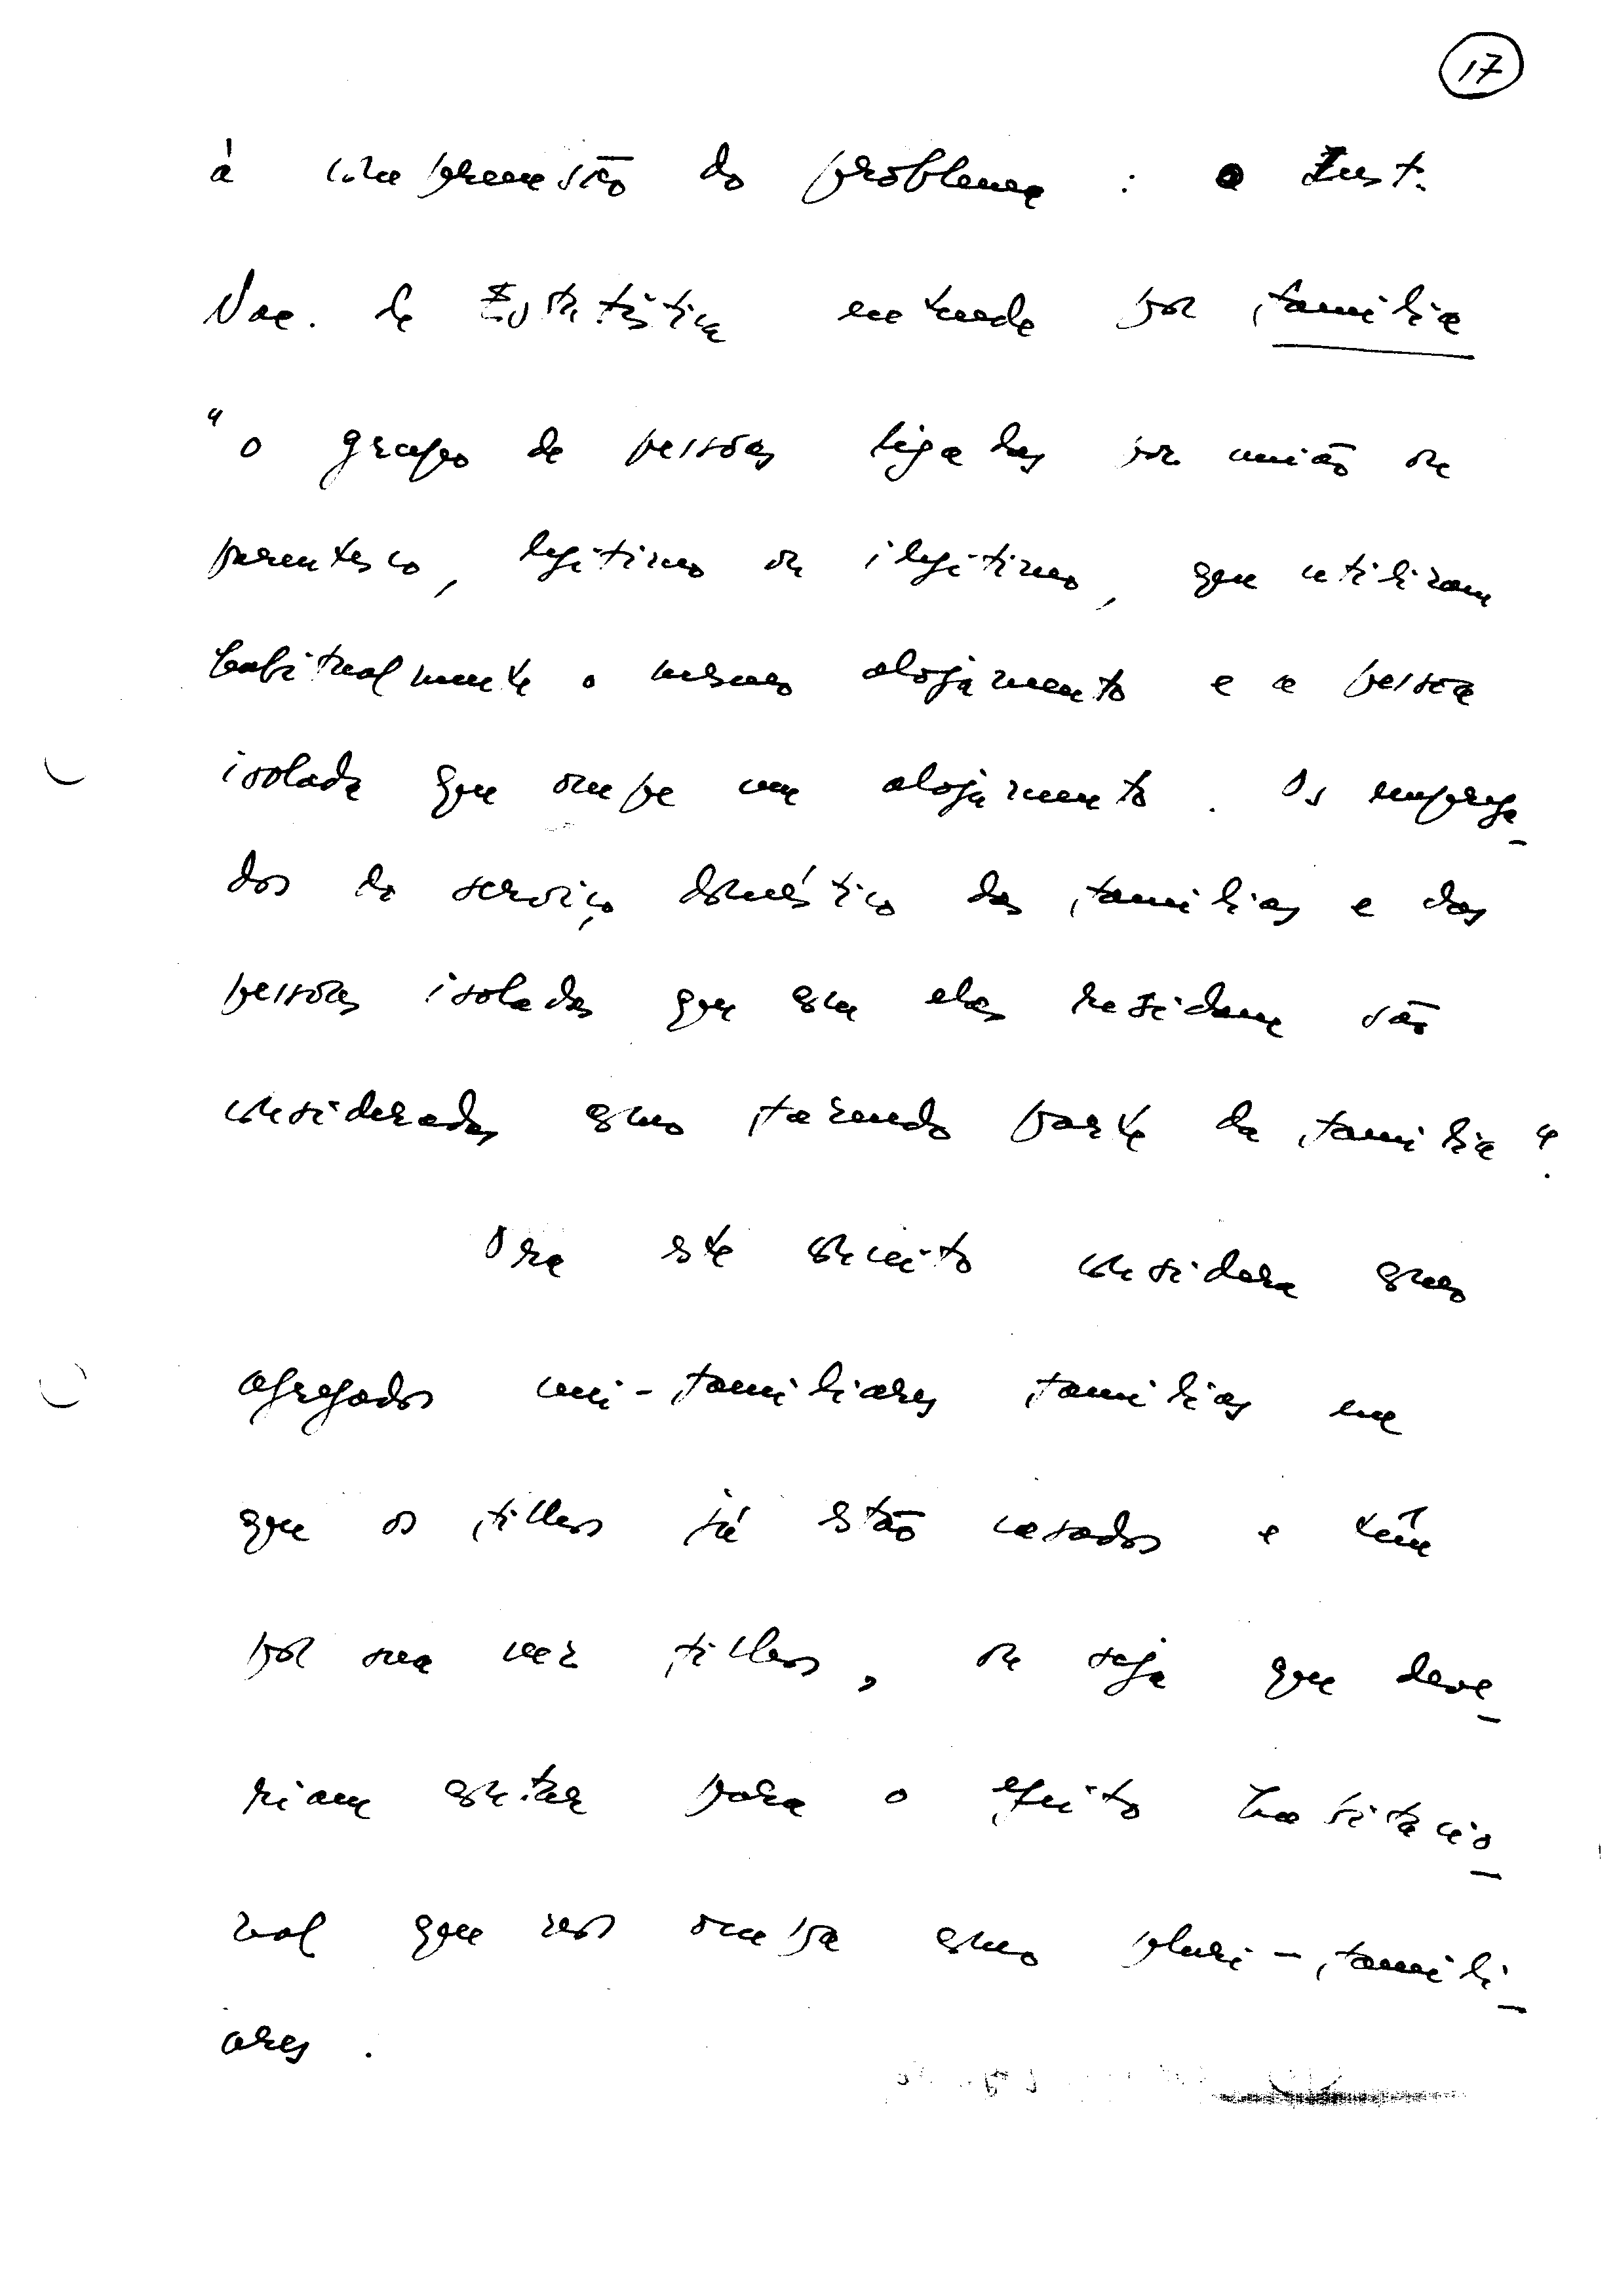 17
à compreensão do problema : o Inst.
Nac. de Estatística entende por família
"o grupo de pessoas ligadas por união ou
parentesco, legítimo ou ilegítimo, que utilizam
habitualmente o mesmo alojamento e a pessoa
isolada que ocupe um alojamento. Os emprega-
dos do serviço doméstico das famílias e das
pessoas isoladas que com elas residam são
consideradas como fazendo parte da família".
Ora este conceito considera como
agregados uni-familiares famílias em
que os filhos já estão casados e têm
por sua vez filhos, ou seja que deve-
riam contar para o efeito habitacio-
nal que nos ocupa como pluri-famili-
ares.